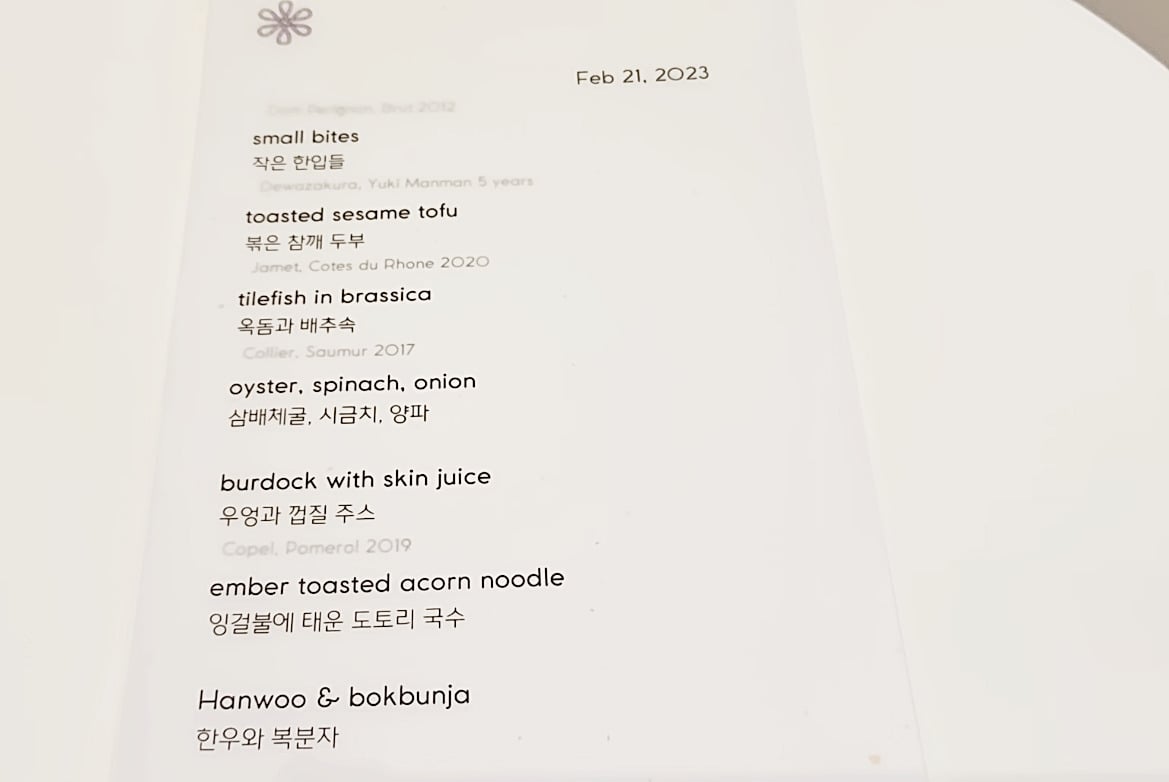 Feb 21, 2023
Dom Perignon, Brut 2012
small bites
작은 한입들
Dewazakura, Yuki Manman 5 years
toasted sesame tofu
볶은 참깨 두부
Jamet, Cotes du Rhone 2020
tilefish in brassica
옥돔과 배추속
Collier, Saumur 2017
oyster, spinach, onion
삼배체굴, 시금치, 양파
burdock with skin juice
우엉과 껍질 주스
Copel, Pomerol 2019
ember toasted acorn noodle
잉걸불에 태운 도토리 국수
Hanwoo & bokbunja
한우와 복분자